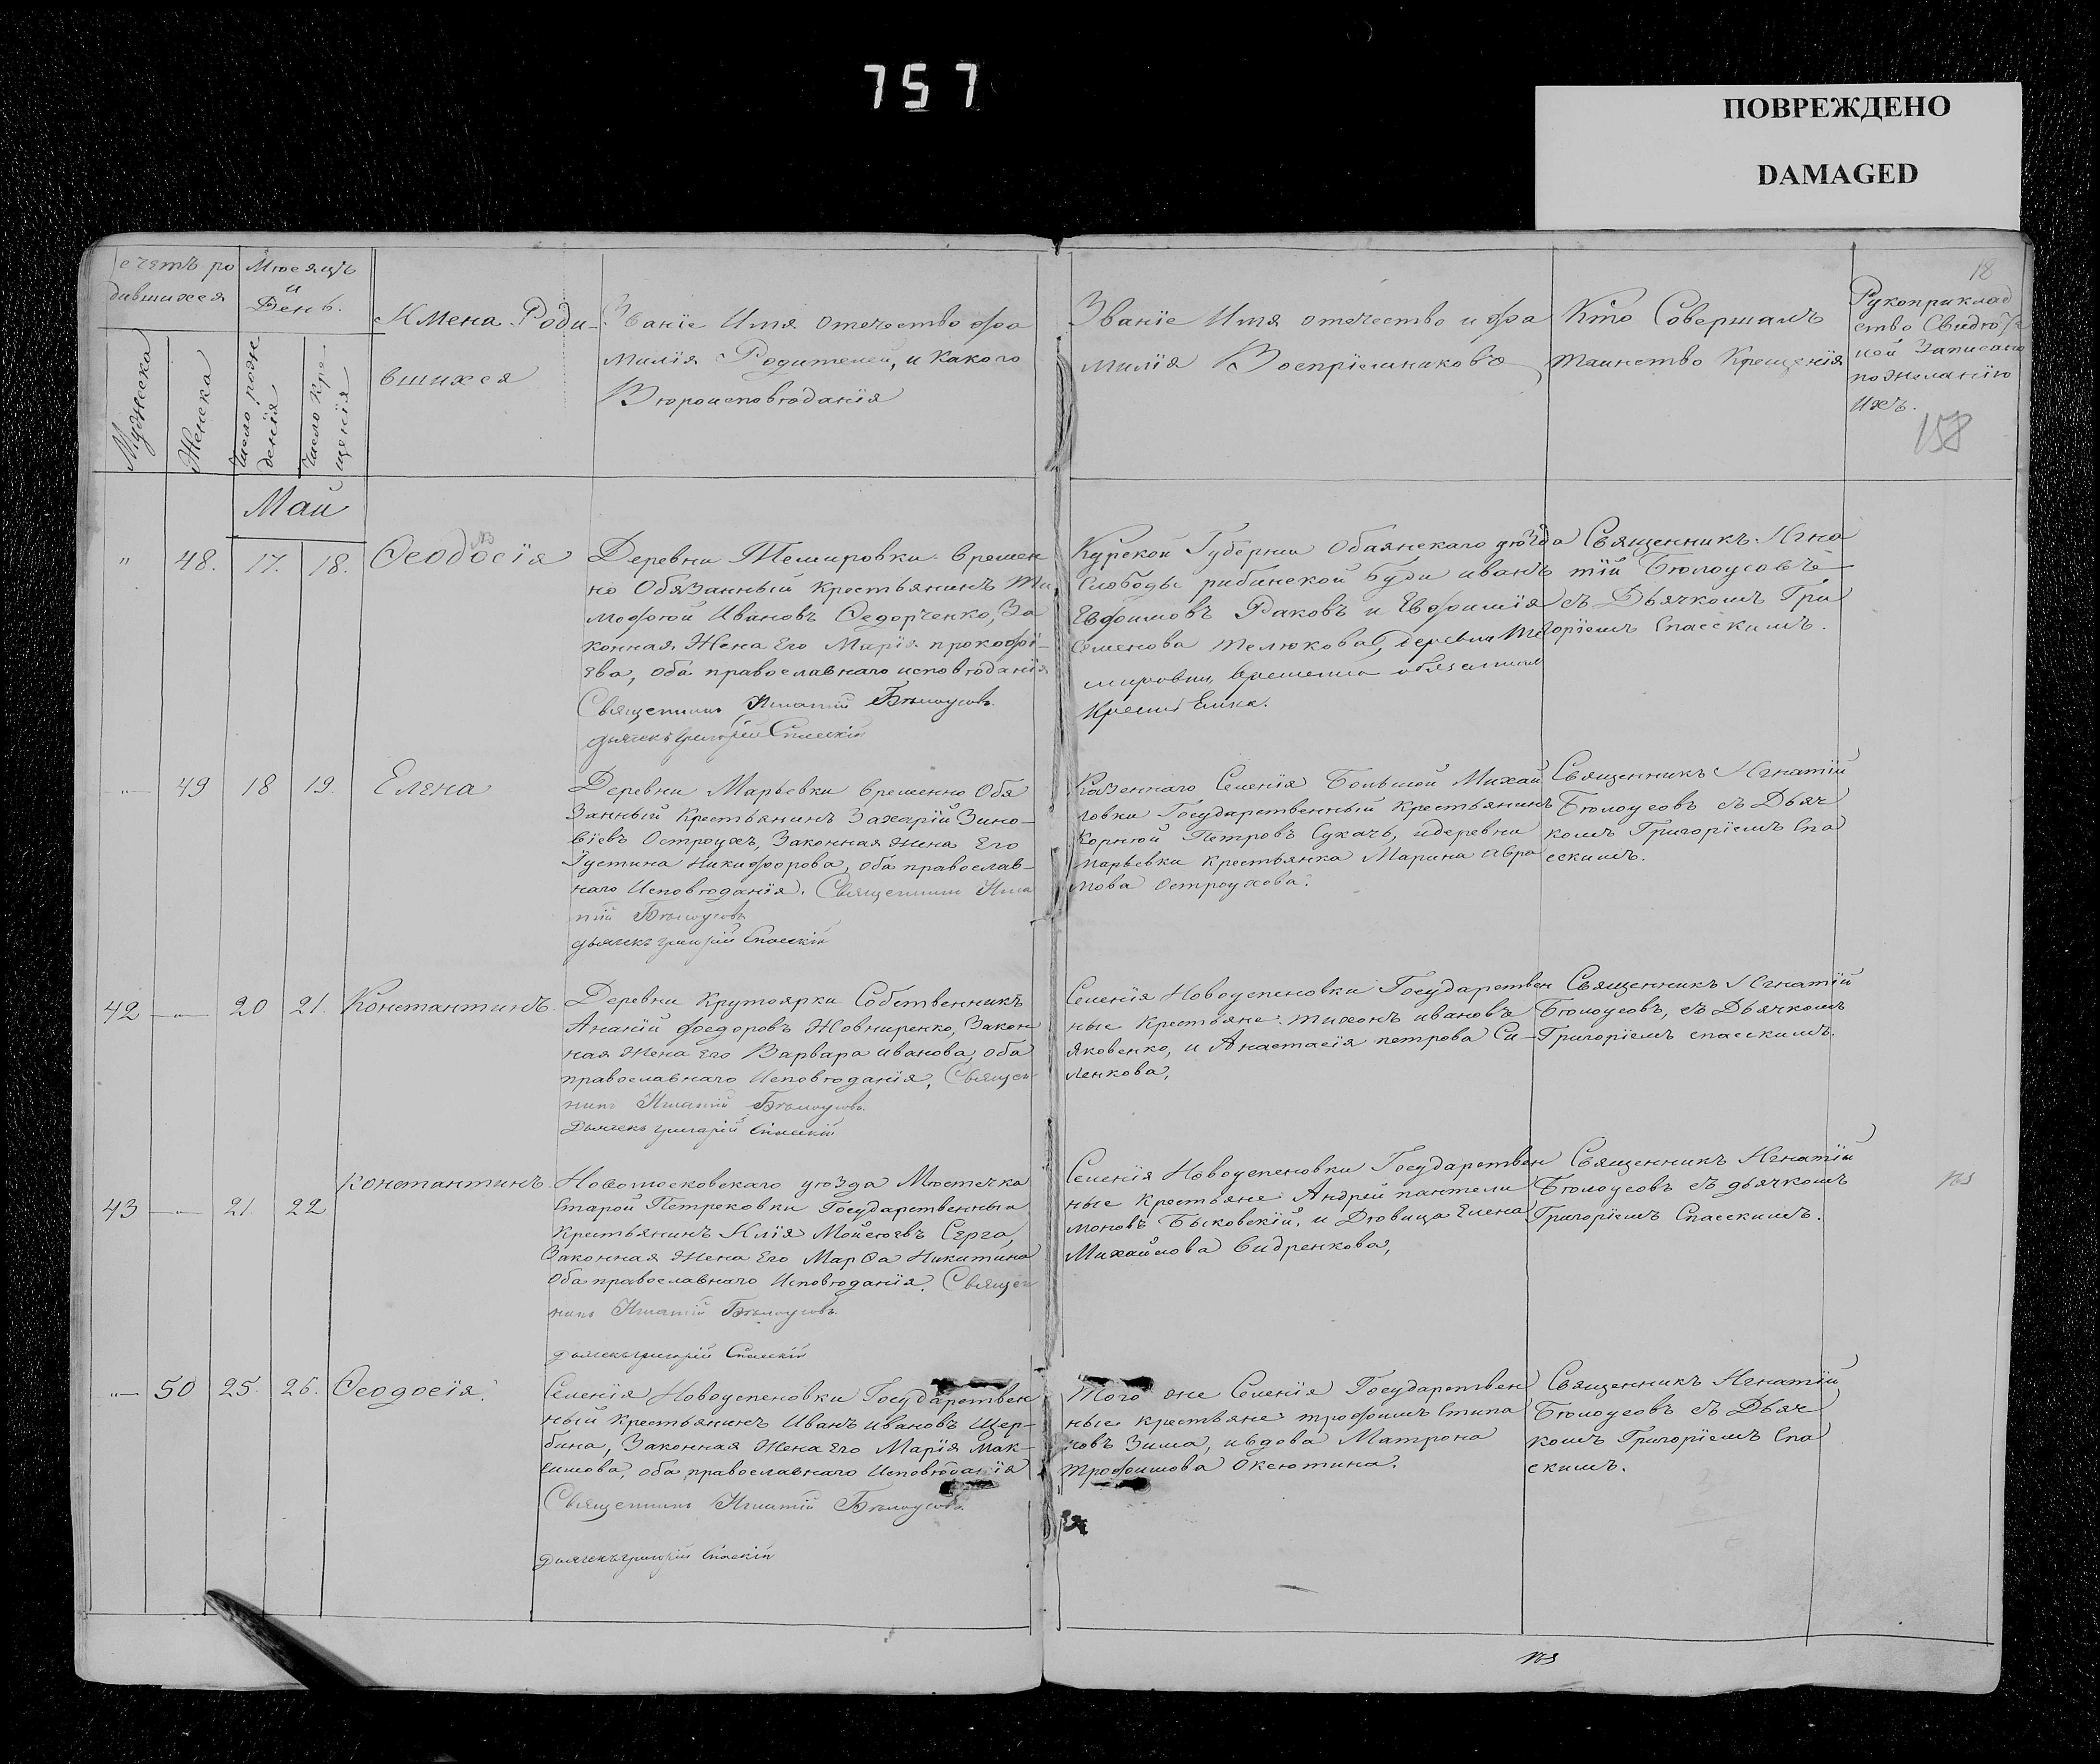 757
ПОВРЕЖДЕНО
DAMAGED
18
158
Счетъ ро
дившихся
Мужеска
Женска
Мѣсяцъ
и
День.
Число рож
денія
Число кре
щенія
Имена Роди-
вшихся
Званіе Имя отечество фа
милія Родителей, и какого
Вѣроисповѣданія
Званіе Имя отечество и фа
милія Воспріемниковъ
Кто Совершалъ
таинство Крещенія
Рукоприклад
ство Свидѣте
лей Записано
по желанію
ихъ.
Май
" 48. 17. 18. Ѳеодосія
Деревни Темировки временно
но Обязанный Крестьянинъ Ти
мофѣй Ивановъ Ѳедорченко, За
конная Жена Его Марія прокофі-
ева, оба православнаго исповѣданія
Священникъ Игнатій Бѣлоусовъ.
дьячекъ Григорій Спасскій
Курской Губерніи Обаянскаго уѣзда
Слободы рибинской буди иванъ
Евфимовъ Раковъ и Евфимія
Семенова телюкова, деревни Те
мировки, временно обязанный
Священникъ Игна
тій Бѣлоусовъ
съ Дьячкомъ Гри
горіемъ Спасскимъ.
" 49 18 19. Елена
Деревни Марьевки временно Обя
занный Крестьянинъ Захарій Зино-
віевъ Остроухъ, Законная жена Его
Іустина Никифорова, оба православ-
наго Исповѣданія. Священникъ Игна
тій Бѣлоусовъ
дьячекъ григорій Спасскій
Казеннаго Селенія Большой Михай
ловки Государственный Крестьянинъ
Корнѣй Петровъ Сукачъ, идеревни
Марьевки крестьянка Марина Авра
мова Остроухова.
Священникъ Игнатій
Бѣлоусовъ съ Дьяч
комъ Григоріемъ Спа
сскимъ.
42 " 20 21. Константинъ.
Деревни Крутоярки Собственникъ
Ананій федоровъ Жовниренко, Закон
ная жена его Варвара иванова, оба
православнаго Исповѣданія, Священ
никъ Игнатій Бѣлоусовъ.
Дьячекъ григорій Спасскій
Селенія Новоуспеновки Государствен
ные Крестьяне: тихонъ ивановъ
Яковенко, и Анастасія петрова Си-
ленкова,
Священникъ Игнатій
Бѣлоусовъ, съ Дьячкомъ
Григоріемъ спасскимъ.
43 " 21. 22 Константинъ.
Новомосковскаго уѣзда Мѣстечка
Старой Петрековки Государственный
Крестьянинъ Илія Мойсѣевъ Серга,
Законная Жена Его Марѳа Никитина
Оба православнаго Исповѣданія. Священ
никъ Игнатій Бѣлоусовъ.
дьячекъ григорій Спасскій
Селенія Новоуспеновки Государствен
ные Крестьяне Андрей пантели
моновъ Быковскій, и Дѣвица Елена
Михайлова Сидренкова,
Священникъ Игнатій
Бѣлоусовъ съ дьячкомъ
Григоріемъ Спасскимъ.
" 50 25. 26. Ѳеодосія.
Селенія Новоуспеновки Государствен
ный крестьянинъ Иванъ ивановъ Щер-
бина, Законная Жена Его Марія Мак-
симова, оба православнаго Исповѣданія
Священникъ Игнатій Бѣлоусовъ.
дьячекъ григорій Спаскій
Того же Селенія Государствен
ные крестьяне трофимъ Стипа
новъ Зима, ивдова Матрона
Трофимова Оксютина.
Священникъ Игнатій
Бѣлоусовъ съ Дьяч
комъ Григоріемъ Спа
скимъ.